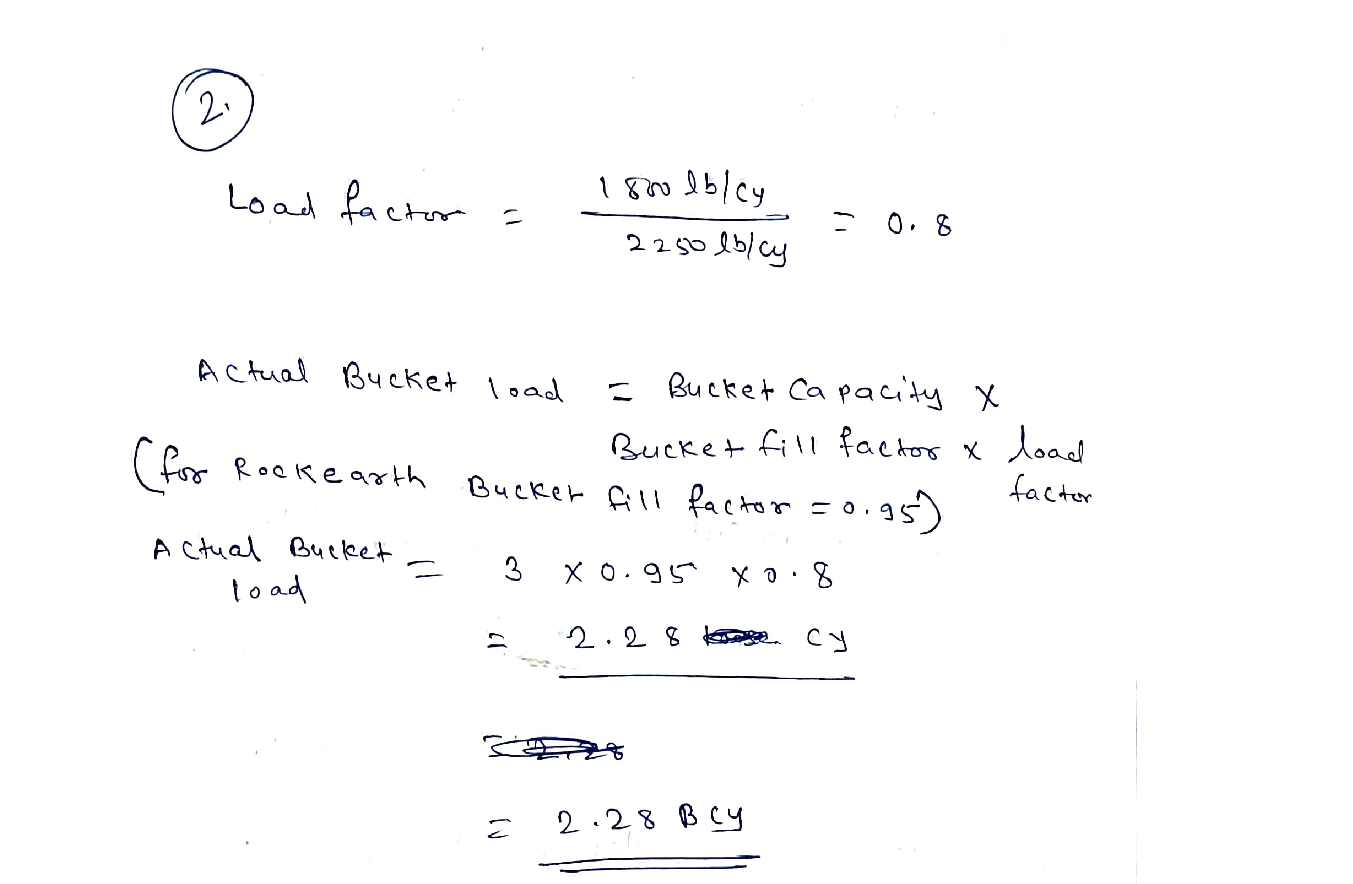 2.
Load factor = 1800 lb/cy / 2250 lb/cy = 0.8
Actual Bucket load = Bucket Capacity x
Bucket fill factor x load factor
(for Rockearth Bucket fill factor = 0.95)
Actual Bucket load = 3 x 0.95 x 0.8
= 2.28 cy
= 2.28 BCY